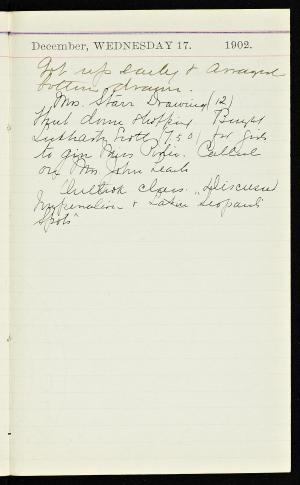 December, WEDNESDAY 17. 1902.
Got up early & arranged
bottom drawer.
Mrs. Starr Drawing (12)
Went down shopping Bought
Scott (7.50) for girls
to give Miss Called
on Mrs. John
class. "Discussed
& "Leopard's
Spots"